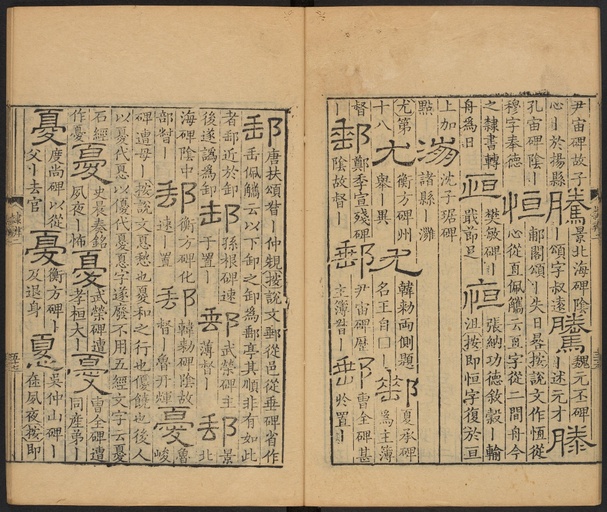 尹宙碑故子
心丨於揚縣
騰
景北海碑陰
丨頌字叔遠
魏元丕碑
丨述元才
滕
孔宙碑陰丨
穆字奉德
恒
郙閣頌丨失日晷按說文作恆從
心從亘佩觿云亘字從二間舟今
之隸書轉
舟爲日
恒
樊敏碑丨
戢節足
恒
張納功德敘穀丨輸
沮按卽恒字復於亘
上加
點
沈子琚碑
諸縣丨灘
尤第
十八
尤
衡方碑州
舉丨異
尤
韓勑兩側題
名王自囗丨
郵
夏承碑
爲主簿
督
丨
郵
鄭季宣殘碑
陰故督丨
郵
尹宙碑歷
主簿督丨
郵
曹全碑甚
於置丨
郵
唐扶頌督丨仲規按說文郵從邑從垂碑省作
垂佩觿云以下卸之卸爲郵亭其順非有如此
者郵近於卸
後遂譌爲卸
郵
孫根碑速
于置丨
郵
武榮碑主
薄督丨
郵
景
北
海碑陰中
部督丨
郵
衡方碑化
速丨置
郵
韓勑碑陰故
督魯开煇
憂
魯
峻
碑遭母丨按說文㥑愁也憂和之行也優饒也後人
以憂代㥑以優代憂㥑字遂廢不用五經文字云憂
石經
作憂
憂
史晨奏銘
夙夜丨怖
憂
武榮碑遭
孝桓大丨
憂
曹全碑遭
同產弟丨
憂
度尚碑以從
父丨去官
憂
衡方碑丨
及退身
㥑
吳仲山碑丨
在夙夜按卽